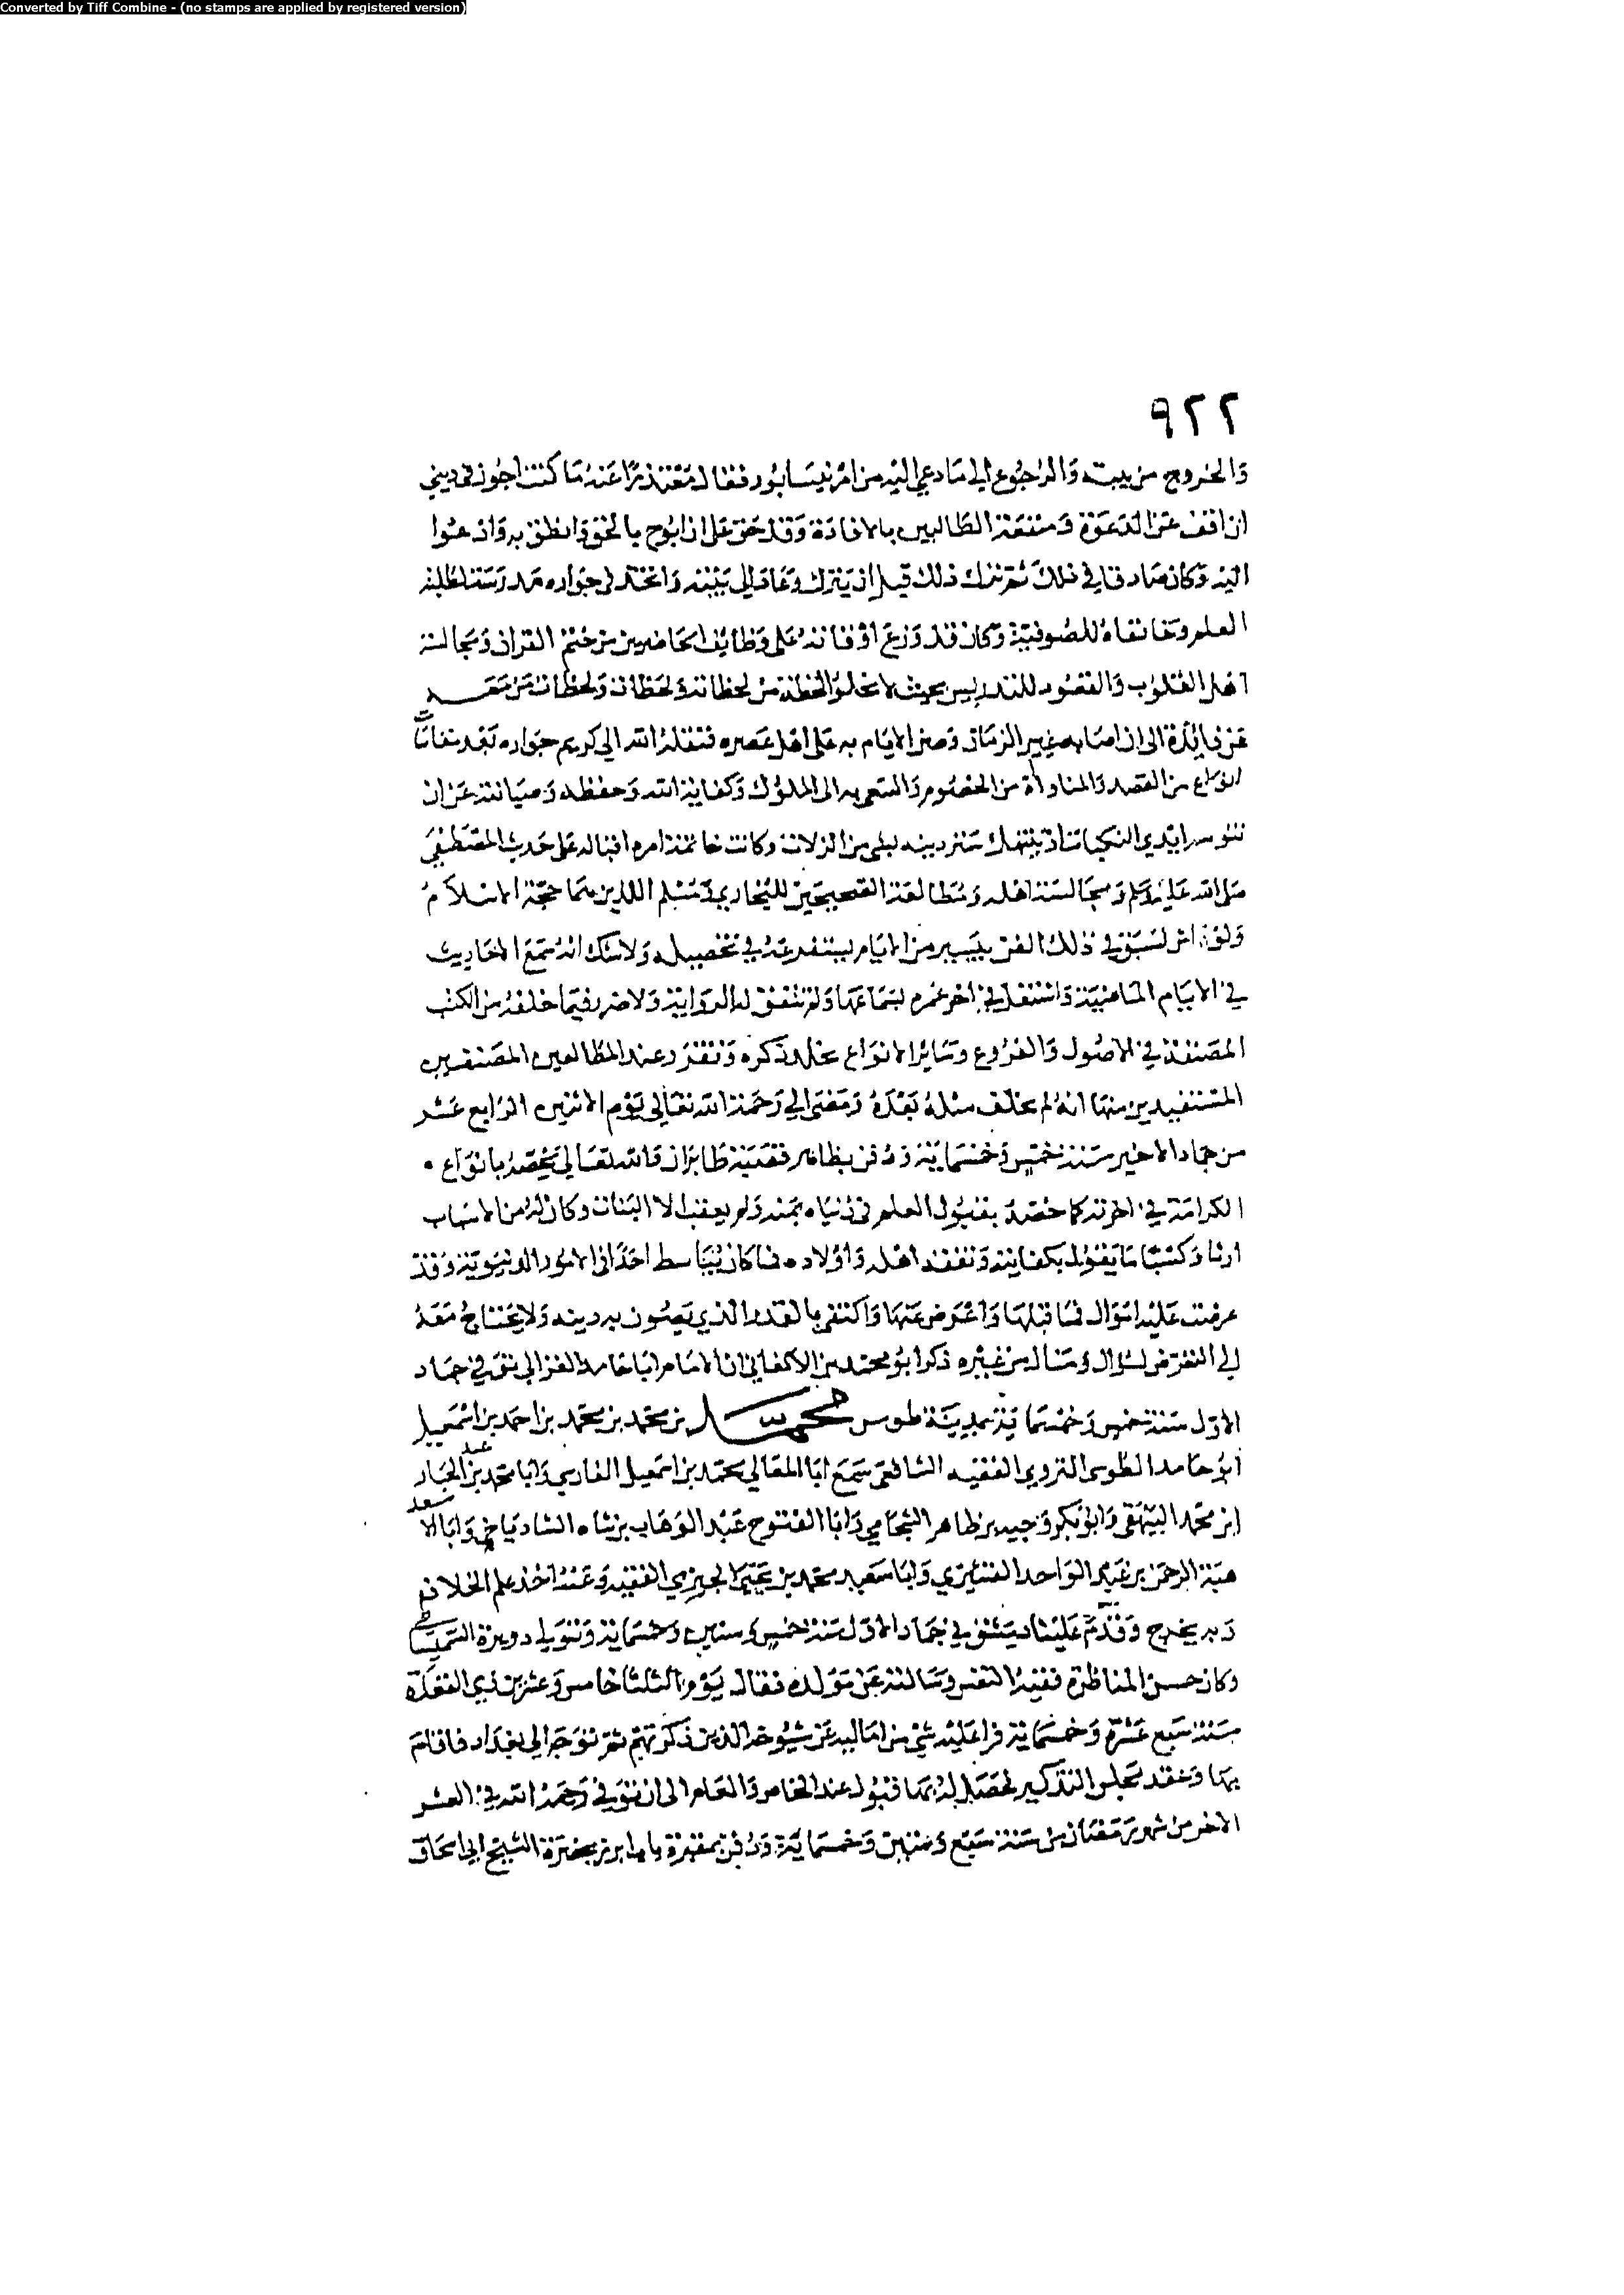 Converted by Tiff Combine - (no stamps are applied by registered version)
٩٢٢
والخروج من بيته والرجوع الى ما دعي اليه من امر نيسابور فقال معتذرا عنه ما كنت اجوز في ديني
ان اقف عن الدعوة ومنفعة الطالبين بالافادة وقد حق علي ان ابوح بالحق وانطق به وادعوا
اليه وكان صادقا في ذلك ثم ترك ذلك قبل ان يترك وعاد الى بيته واتخذ في جواره مدرسة لطلبة
العلم وخانقاه للصوفية وكان قد وزع اوقاته على وظايف الحاضرين من ختم القران ومجالسة
اهل القلوب والقعود للتدريس بحيث لا تخلو لحظة من لحظاته ولحظات من معه
عن فائدة الى ان اصابه عين الزمان وضن الايام به على اهل عصره فنقله الله الى كريم جواره بعد مقاساة
انواع من القصد والمناوأة من الخصوم والسعي به الى الملوك وكفاية الله وحفظه وصيانته عن ان
تنوسه ايدي النكبات او ينتهك ستر دينه بشي من الزلات وكانت خاتمة امره اقباله على حديث المصطفى
صلى الله عليه وسلم ومجالسة اهله ومطالعة الصحيحين للبخاري ومسلم اللذين هما حجة الاسلام
ولو عاش لسبق في ذلك الفن بيسير من الايام يستفرغه في تحصيله ولا شك انه سمع الاحاديث
في الايام الماضية واشتغل في اخر عمره بسماعها ولم تتفق له الرواية ولا ضرر فيما خلفه من الكتب
المصنفة في الاصول والفروع وسائر الانواع تخلد ذكره وتقرر عند المطالعين المصنفين
المستفيدين منها انه لم يخلف مثله بعده ومضى الى رحمة الله تعالى يوم الاثنين الرابع عشر
من جماد الاخير سنة خمس وخمسماية ودفن بظاهر قصبة طابران والله تعالى يخصه بانواع
الكرامة في اخرته كما خصه بقبول العلم في دنياه بمنه ولم يعقب الا البنات وكان له من الاسباب
ارثا وكسبا ما يقوم بكفايته ونفقة اهله واولاده فما كان يباسط احدا في الامور الدنيوية وقد
عرضت عليه اموال فما قبلها واعرض عنها واكتفى بالقدر الذي يصون به دينه ولا يحتاج معه
الى التعرض لسؤال ومنال من غيره ذكر ابو محمد بن الاكفاني ان الامام ابا حامد الغزالي توفي في جماد
الاول سنة خمس وخمسماية بمدينة طوس محمد بن محمد بن محمد بن احمد بن اسمعيل
ابو حامد الطوسي البروي الفقيه الشافعي سمع ابا المعالي محمد بن اسمعيل الفارسي وابا محمد عبد الجبار
ابن محمد البيهقي وابو بكر وجيه بن طاهر الشحامي وابا الفتوح عبد الوهاب بن شاه الشاذياخي وابا الاسعد
هبة الرحمن بن عبد الواحد القشيري وابا سعيد محمد بن يحيى الجيزي الفقيه وعنه اخذ علم الخلاف
وبه يخرج وقدم علينا دمشق في جماد الاول سنة خمس وستين وخمسماية ونزل دويرة السميساطي
وكان حسن المناظرة فقيد النفس وسالته عن مولده فقال يوم الثلثا خامس وعشرين ذي القعدة
سنة سبع عشرة وخمسماية قرا عليه شي من اماليه عن شيوخه الذين ذكرتهم ثم توجه الى بغداد فاقام
بها وعقد مجلس التذكير فحصل له بها قبول عند الخاص والعام الى ان توفي رحمه الله في العشر
الاخر من شهر رمضان من سنة سبع وستين وخمسماية ودفن بمقبرة باب ابرز بحضرة الشيخ ابي اسحاق